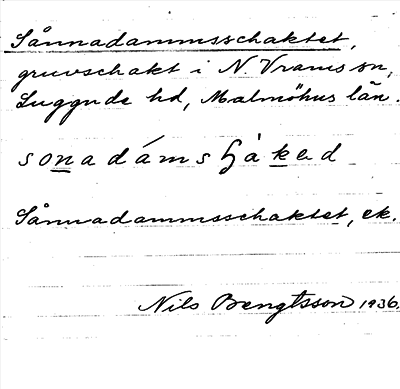 Sånnadammsschaktet,
gruvschakt i N. Vrams sn,
Luggude hd, Malmöhus län.
sonadámsʃàkad
Sånnadammsschaktet, ek.
Nils Bengtsson 1936.